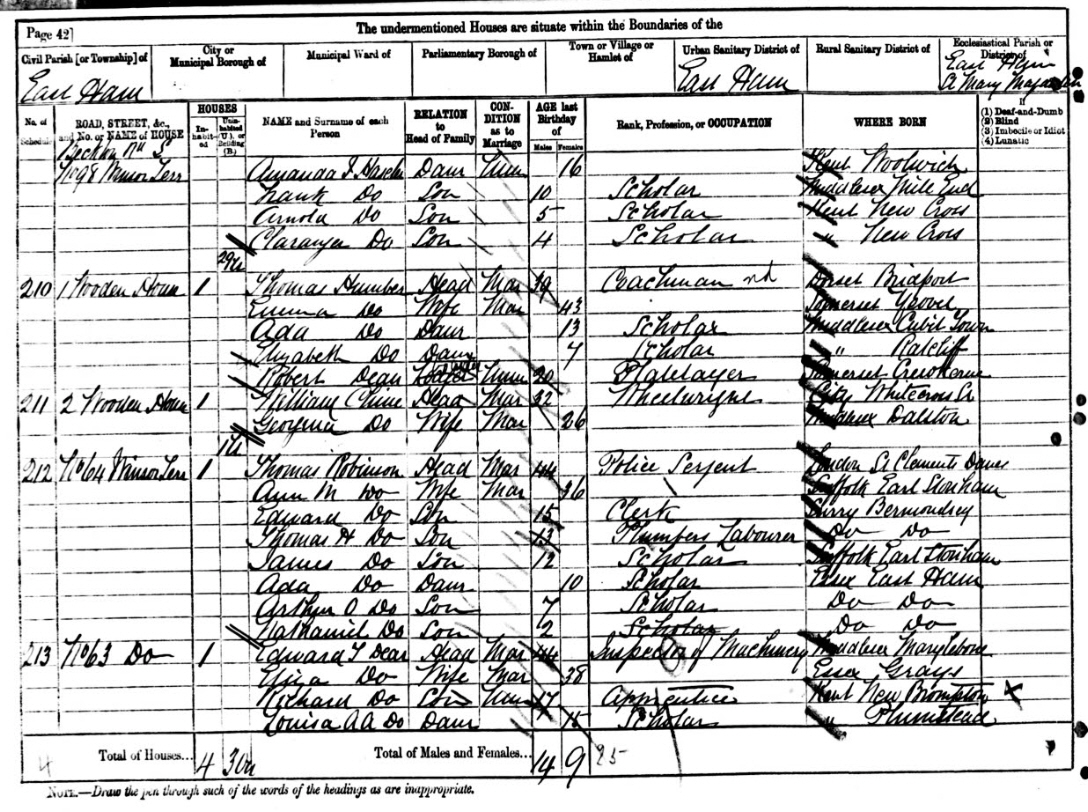 Page 42]
The undermentioned Houses are situate within the Boundaries of the
Civil Parish [or Township] of
City or Municipal Borough of
Municipal Ward of
Parliamentary Borough of
Town or Village or Hamlet of
Urban Sanitary District of
Rural Sanitary District of
Ecclesiastical Parish or District of
East Ham
East Ham
East Ham St Mary Magdalen
No. of Schedule
ROAD, STREET, &c., and No. or NAME of HOUSE
HOUSES
Inhabited
Uninhabited (U.), or Building (B.)
NAME and Surname of each Person
RELATION to Head of Family
CONDITION as to Marriage
AGE last Birthday of
Males
Females
Rank, Profession, or OCCUPATION
WHERE BORN
If
(1) Deaf-and-Dumb
(2) Blind
(3) Imbecile or Idiot
(4) Lunatic
Beckton Rd
No 98 Winsor Terr Amanda Daur Unm 16 Kent Woolwich
Frank Do Son 10 Scholar Middlesex Mile End
Arnold Do Son 5 Scholar Kent New Cross
Do Son 4 Scholar " New Cross
29u
210 1 Wooden House 1 Thomas Humber Head Mar 39 Coachman Dorset Bridport
Emma Do Wife Mar 43 Somerset Yeovel
Ada Do Daur 13 Scholar Middlesex Cubit Town
Elizabeth Do Daur 7 Scholar " Ratcliff
Robert Dean Lodger Unm 20 Platelayer Somerset Crewkerne
211 2 Wooden House 1 William Head Mar 32 Wheelwright City Whitecross St
Georgina Do Wife Mar 26 Middlesex Dalston
1u
212 No 64 Winsor Terr 1 Thomas Robinson Head Mar 44 Police Serjent London St Clements Danes
Ann M Do Wife Mar 36 Suffolk Earl Stonham
Edward Do Son 15 Clerk Surry Bermondsey
Thomas H Do Son 13 Plumbers Labourer Do Do
James Do Son 12 Scholar Suffolk Earl Stonham
Ada Do Daur 10 Scholar Essex East Ham
Arthur O Do Son 7 Scholar Do Do
Nathaniel Do Son 2 Scholar Do Do
213 No 63 Do 1 Edward T Dear Head Mar 44 Inspector of Machinery Middlesex Marylebone
Eliza Do Wife Mar 38 Essex Grays
Richard Do Son Unm 17 Apprentice Kent New Brompton X
Louisa A A Do Daur Scholar " Plumstead
4 Total of Houses... 4 30u Total of Males and Females... 14 9 25
NOTE.—Draw the pen through such of the words of the headings as are inappropriate.